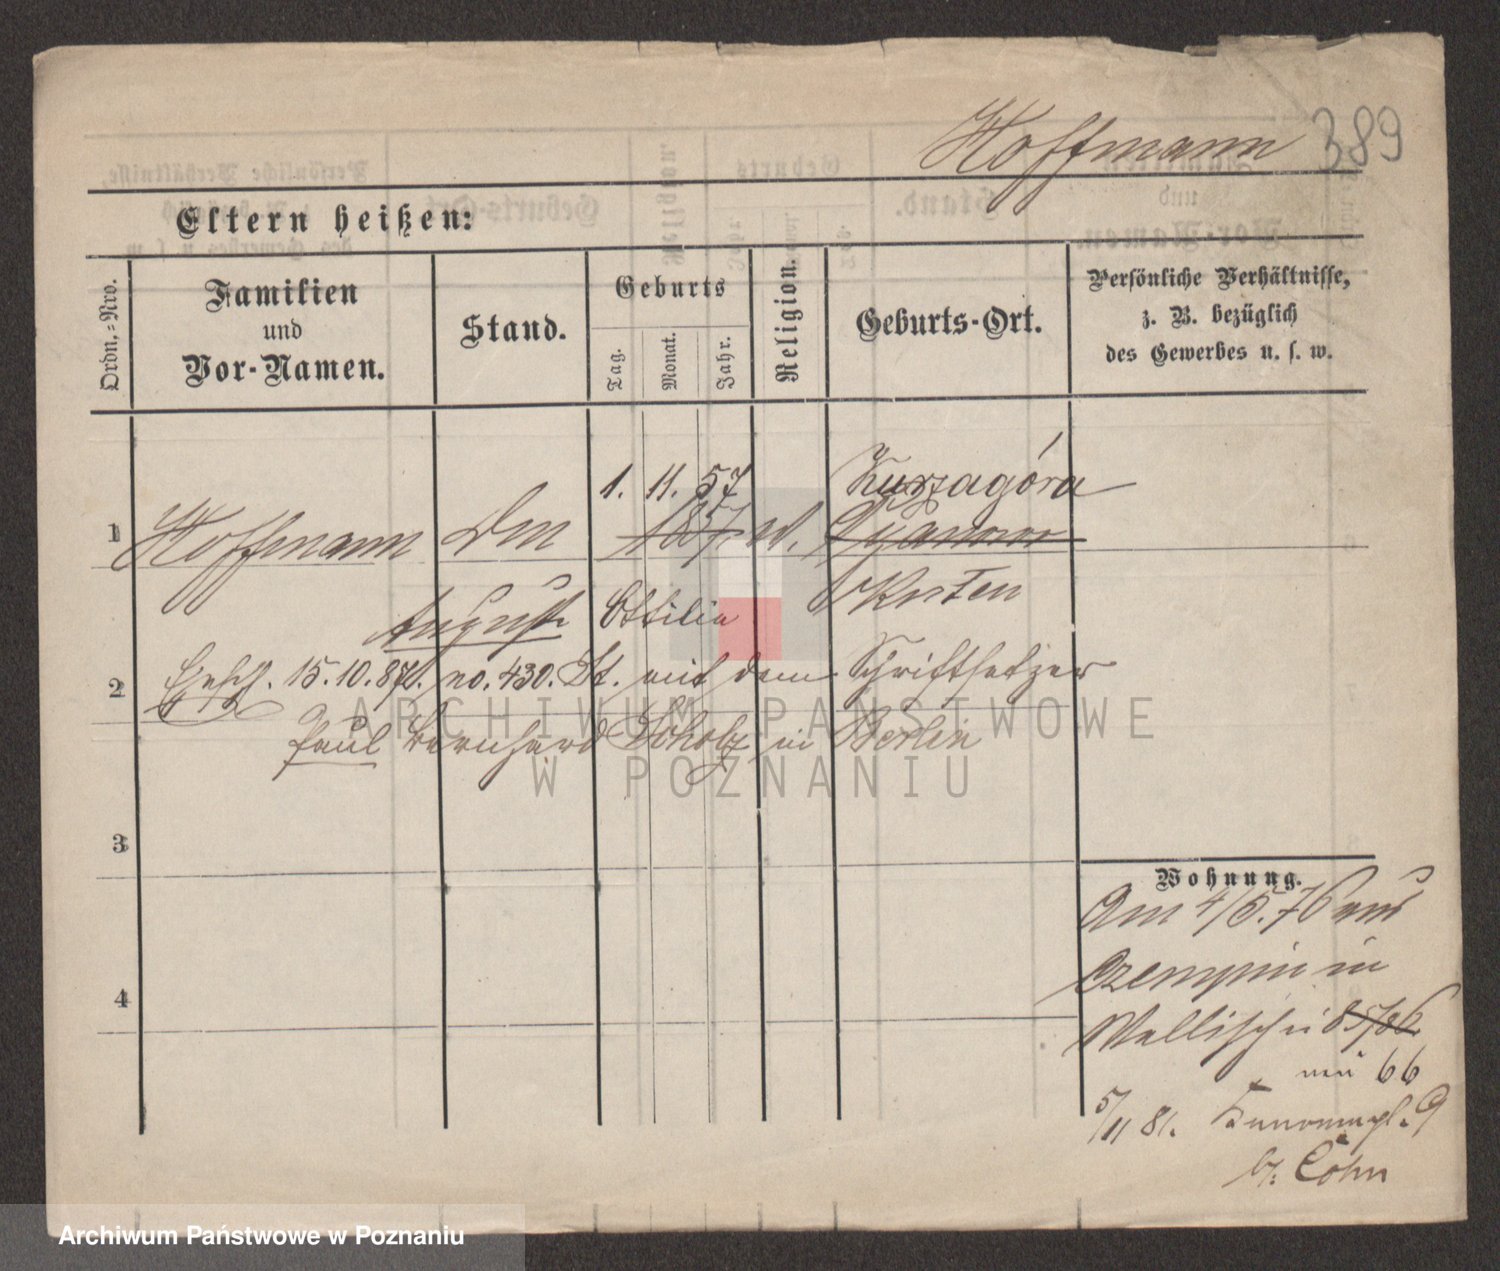 Hoffmann 389
Eltern heißen:
Ordn.=Nro.
Familien
und
Vor-Namen.
Stand.
Geburts
Tag.
Monat.
Jahr.
Religion.
Geburts-Ort.
Persönliche Verhältnisse,
z. B. bezüglich
des Gewerbes u. s. w.
1. 11. 57 Kurzagóra
1 Hoffmann 1857
August Ottilie Kosten
2 Gesch. 15.10.87. no. 430. St. mit dem Schriftsetzer
Paul Bernhard Scholz in Berlin
3
Wohnung.
Am 4/5.76 aus
Czempin in
4
Wallischei 85/86
neu 66
5/11 81. 9
b/: Cohn
ARCHIWUM PAŃSTWOWE
W POZNANIU
Archiwum Państwowe w Poznaniu